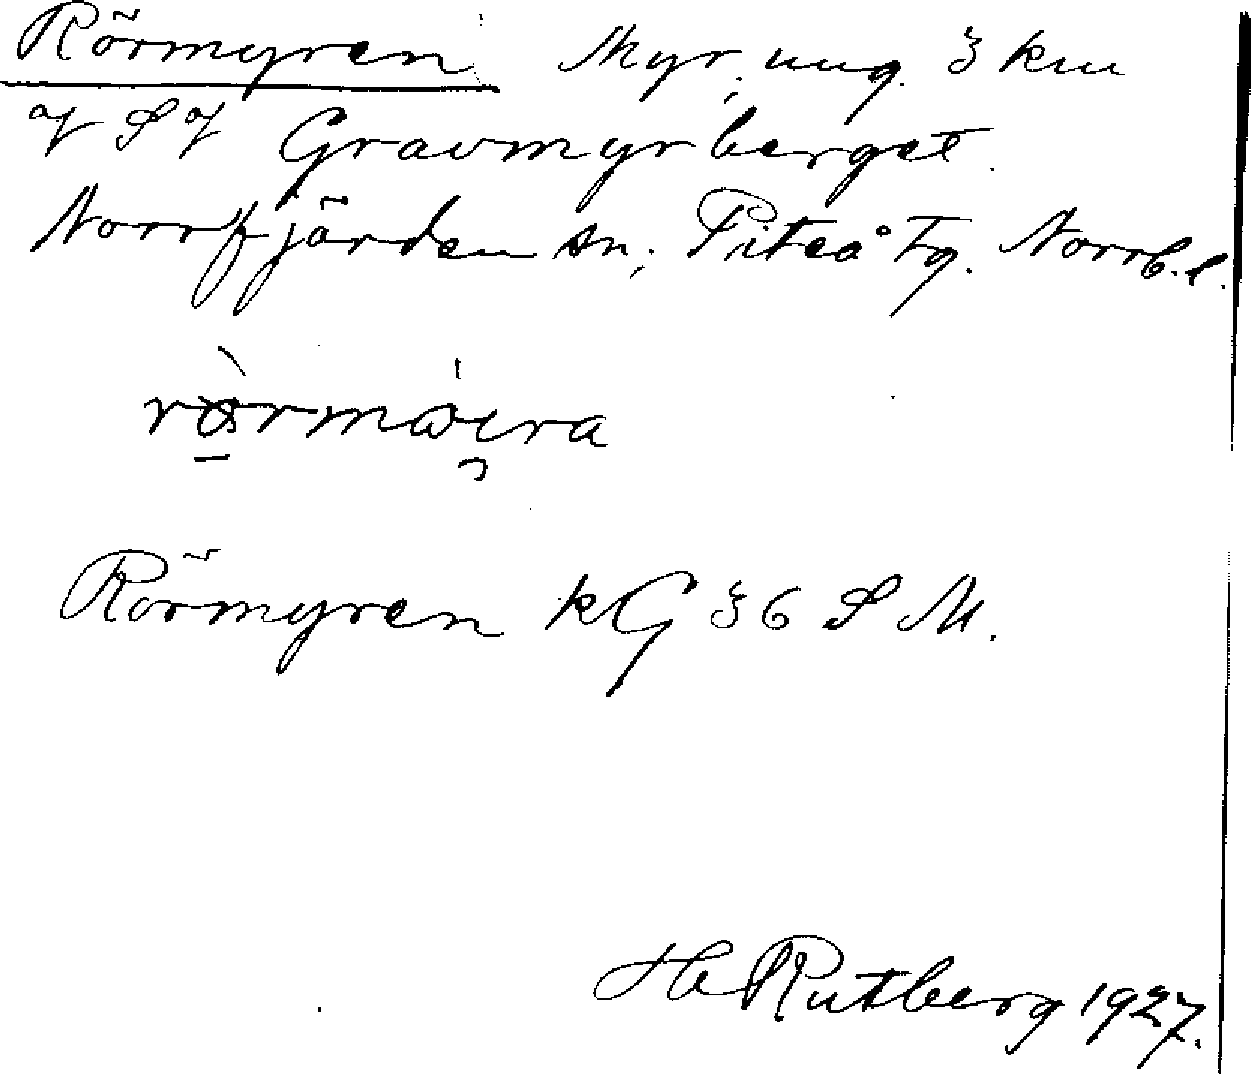 Rörmyren Myr, ung. 3 km
af S af Gravmyrberget.
Norrfjärden sn, Piteå Tg. Norrb. l.
Rörmyren kG 36 S M.
H Rutberg 1927.